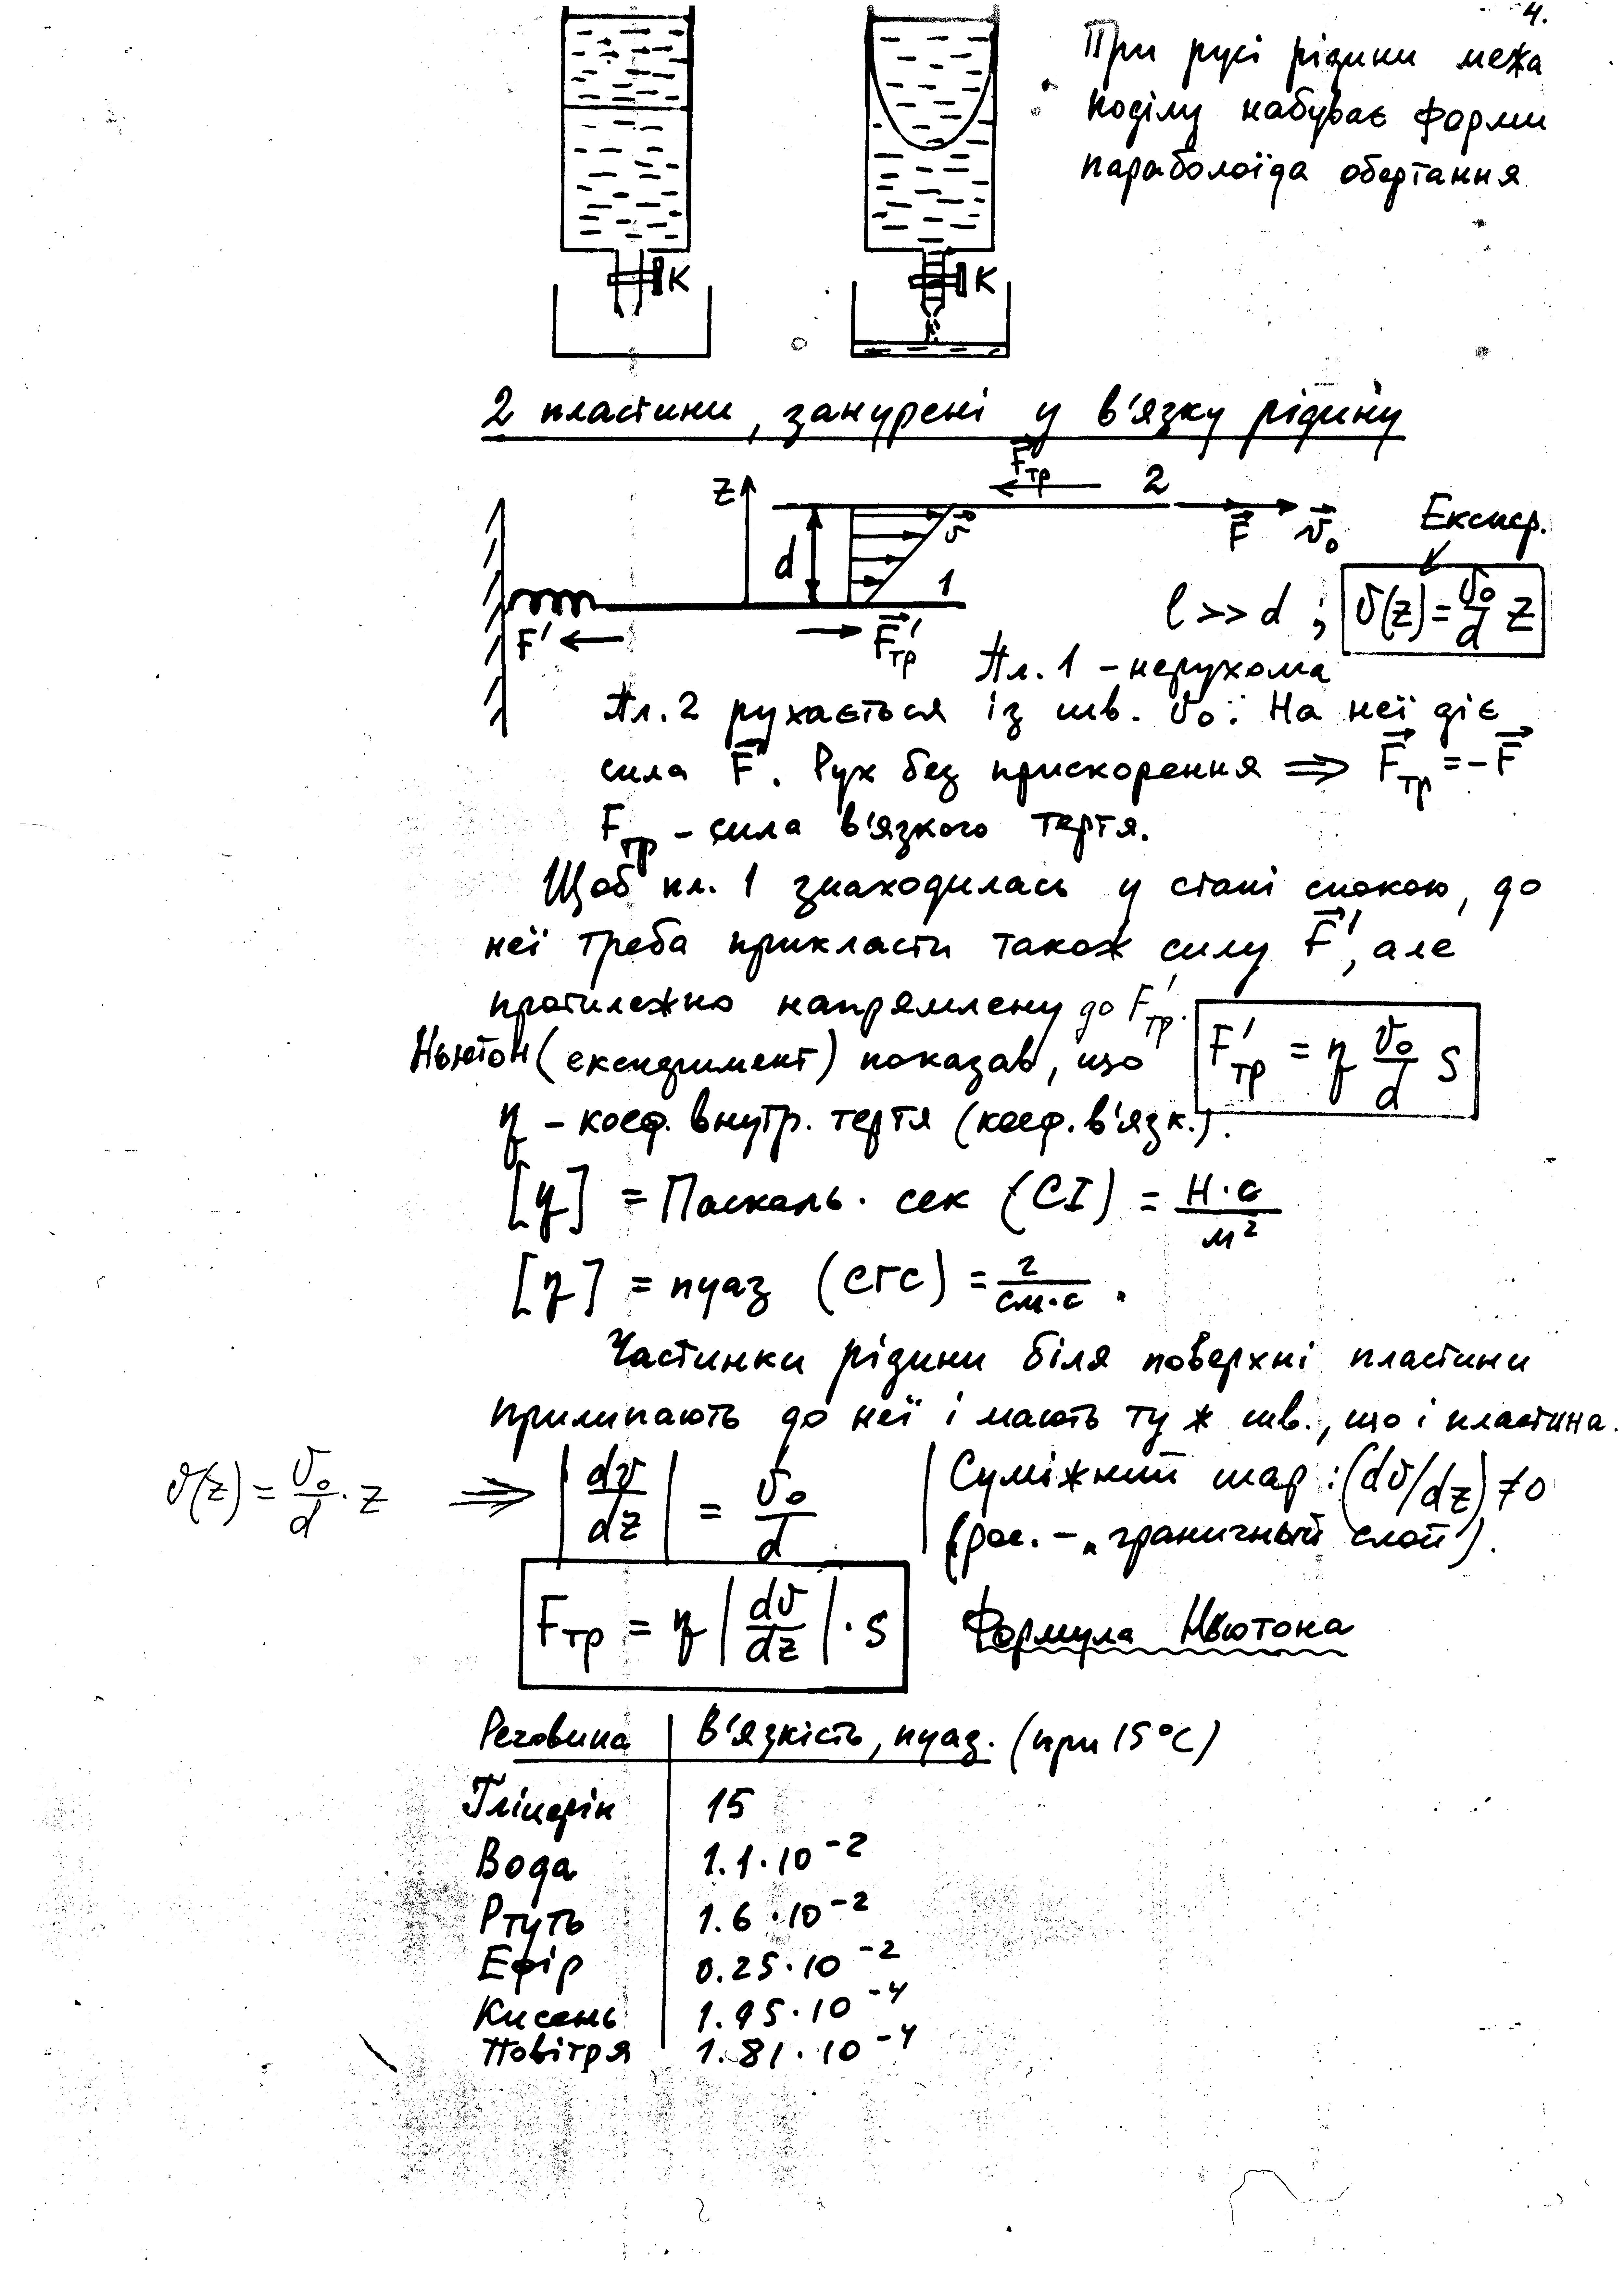 4.
При русі рідини межа
поділу набуває форми
параболоїда обертання.
К
К
2 пластини, занурені у в'язку рідину
z d v 1 2 Fтр F v₀
Експер.
l >> d ; v(z) = v₀/d z
F' F'тр
Пл. 1 – нерухома
Пл. 2 рухається із шв. v₀. На неї діє
сила F. Рух без прискорення ⟹ Fтр = –F
Fтр – сила в'язкого тертя.
Щоб пл. 1 знаходилась у стані спокою, до
неї треба прикласти також силу F', але
протилежно напрямлену до F'тр.
Ньютон (експеримент) показав, що F'тр = η v₀/d S
η – коеф. внутр. тертя (коеф. в'язк.).
[η] = Паскаль · сек (СІ) = Н·с/м²
[η] = пуаз (СГС) = г/см·с .
Частинки рідини біля поверхні пластини
прилипають до неї і мають ту ж шв., що і пластина.
v(z) = v₀/d · z ⟹ |dv/dz| = v₀/d
Суміжний шар : (dv/dz) ≠ 0
(рос. – „граничный слой").
Fтр = η |dv/dz| · S Формула Ньютона
Речовина В'язкість, пуаз. (при 15°С)
Гліцерін 15
Вода 1.1·10⁻²
Ртуть 1.6·10⁻²
Ефір 0.25·10⁻²
Кисень 1.95·10⁻⁴
Повітря 1.81·10⁻⁴